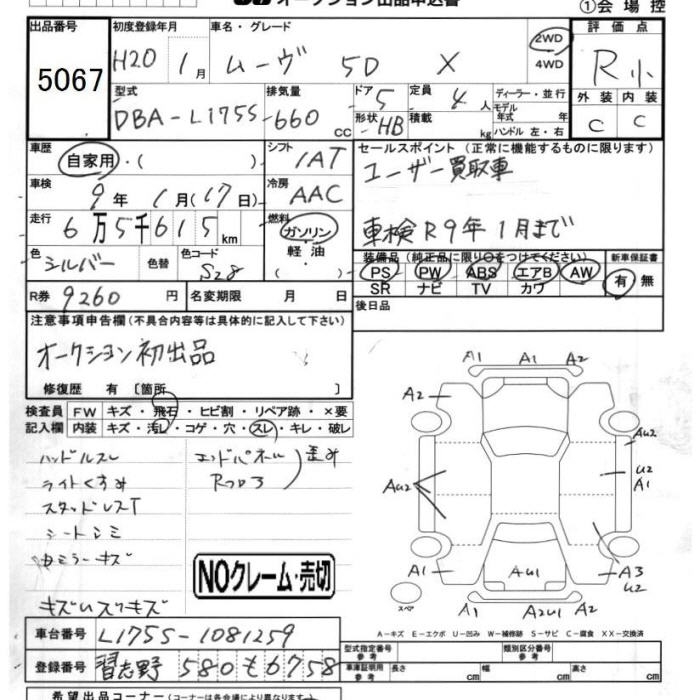 オークション出品申込書
①会場控
出品番号 5067
初度登録年月 H20 1月
車名・グレード ムーヴ 5D X
2WD
4WD
評価点 R小
外装 C 内装 C
型式 DBA-L175S
排気量 660 CC
ドア 5
形状 HB
定員 4人
積載 kg
ディーラー・並行
モデル年式 年
ハンドル 左・右
車歴 自家用・( )
シフト IAT
セールスポイント (正常に機能するものに限ります)
ユーザー買取車
車検 9年 1月(17日)
冷房 AAC
走行 6万5千615km
燃料 ガソリン・軽油
車検R9年1月まで
色 シルバー 色替
色コード S28
装備品 (純正品に限り○をつけてください)
新車保証書
PS PW ABS エアB AW
SR ナビ TV カワ
有 無
R券 9260円
名変期限 月 日
後日品
注意事項申告欄 (不具合内容等は具体的に記入して下さい)
オークション初出品
修復歴 有 〔箇所 〕
検査員 FW キズ・飛石・ヒビ割・リペア跡・×要
記入欄 内装 キズ・汚レ・コゲ・穴・スレ・キレ・破レ
ハンドルスレ
ライトくすみ
スタッドレスT
シートシミ
ミラーキズ
エンドパネル
Rフロア
歪み
NOクレーム・売切
A1 A1 A2
A2
AU2
U2
A1
AU2
A1
AU1
A2
A3
U2
A1 A2U1 A1
スペア
A-キズ E-エクボ U-凹み W-補修跡 S-サビ C-腐食 XX-交換済
車台番号 L175S-1081259
登録番号 習志野 580 も 6758
型式指定番号 参考
類別区分番号 参考
車庫証明用 参考
長さ cm 幅 cm 高さ cm
希望出品コーナー (コーナーは各会場により異なります)